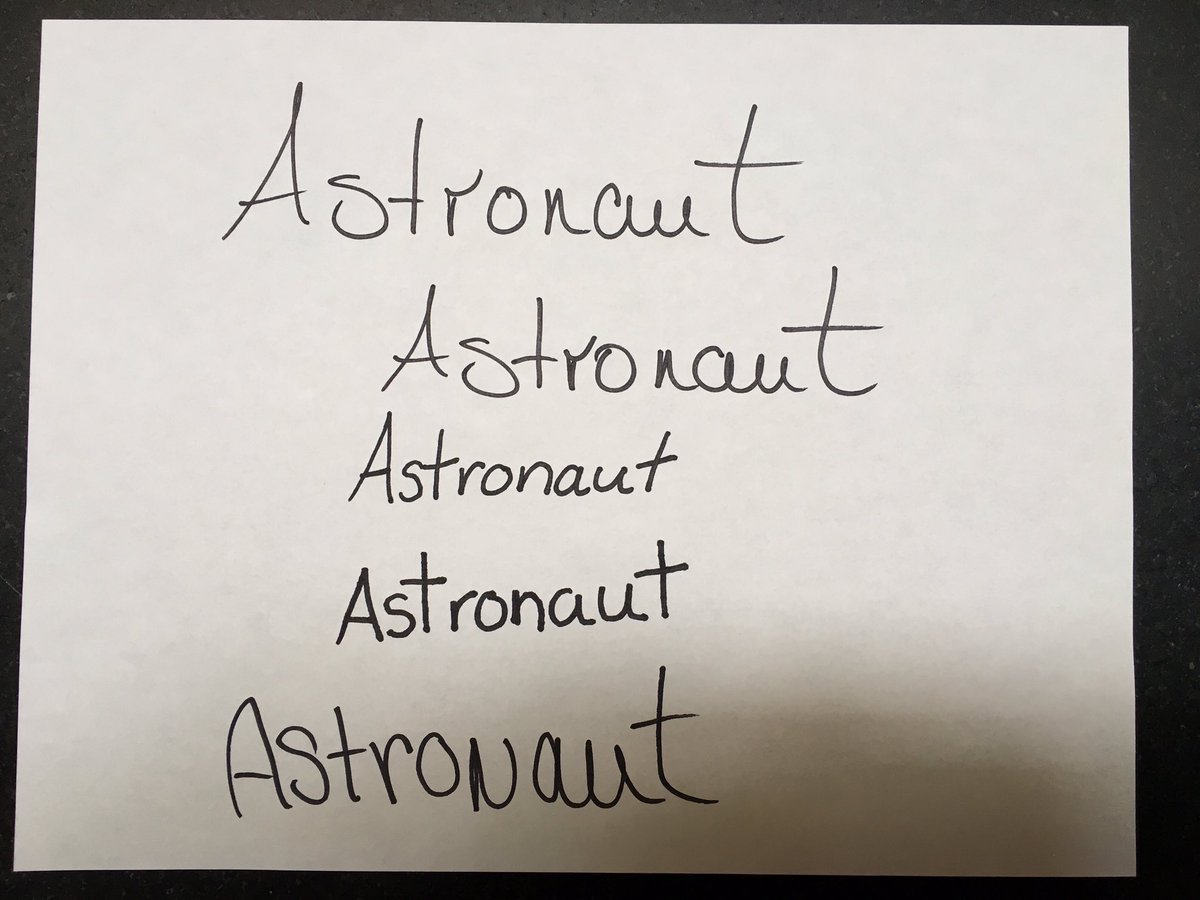 Astronaut
Astronaut
Astronaut
Astronaut
Astronaut